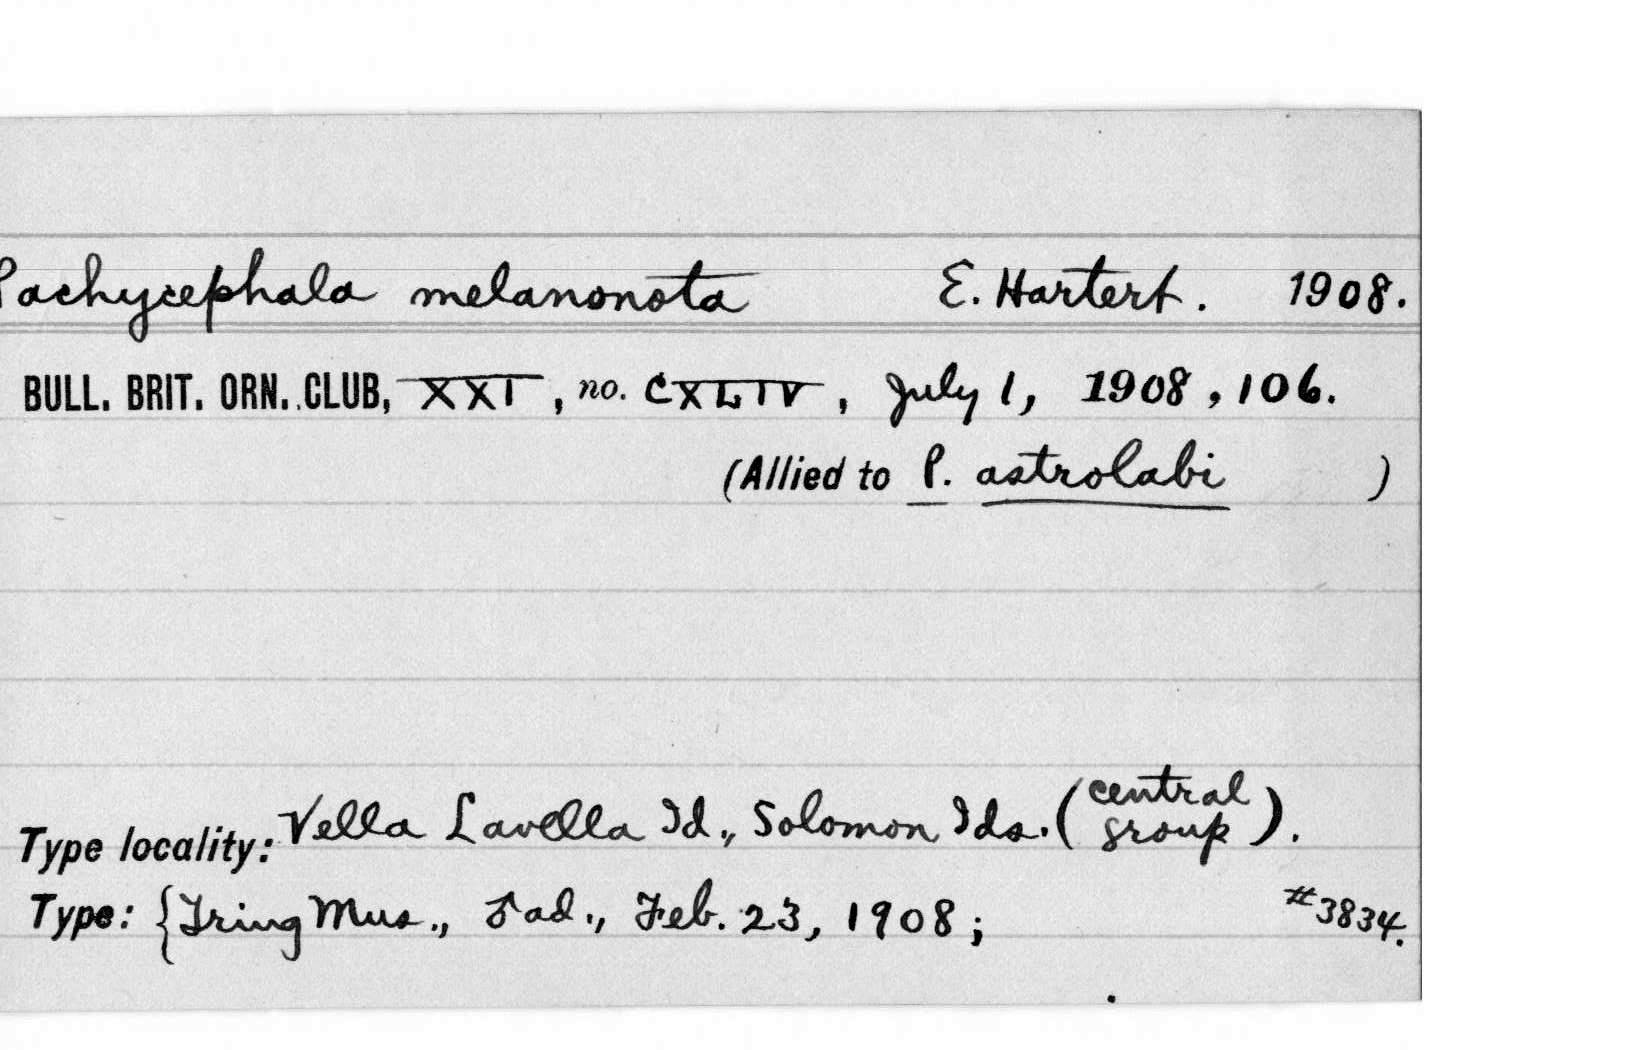 Pachycephala melanonota E. Hartert. 1908.
BULL. BRIT. ORN. CLUB, XXI, no. CXLIV, July 1, 1908, 106.
(Allied to P. astrolabi )
Type locality: Vella Lavella Id., Solomon Ids. (central group).
Type: {Tring Mus., ad., Feb. 23, 1908; #3834.